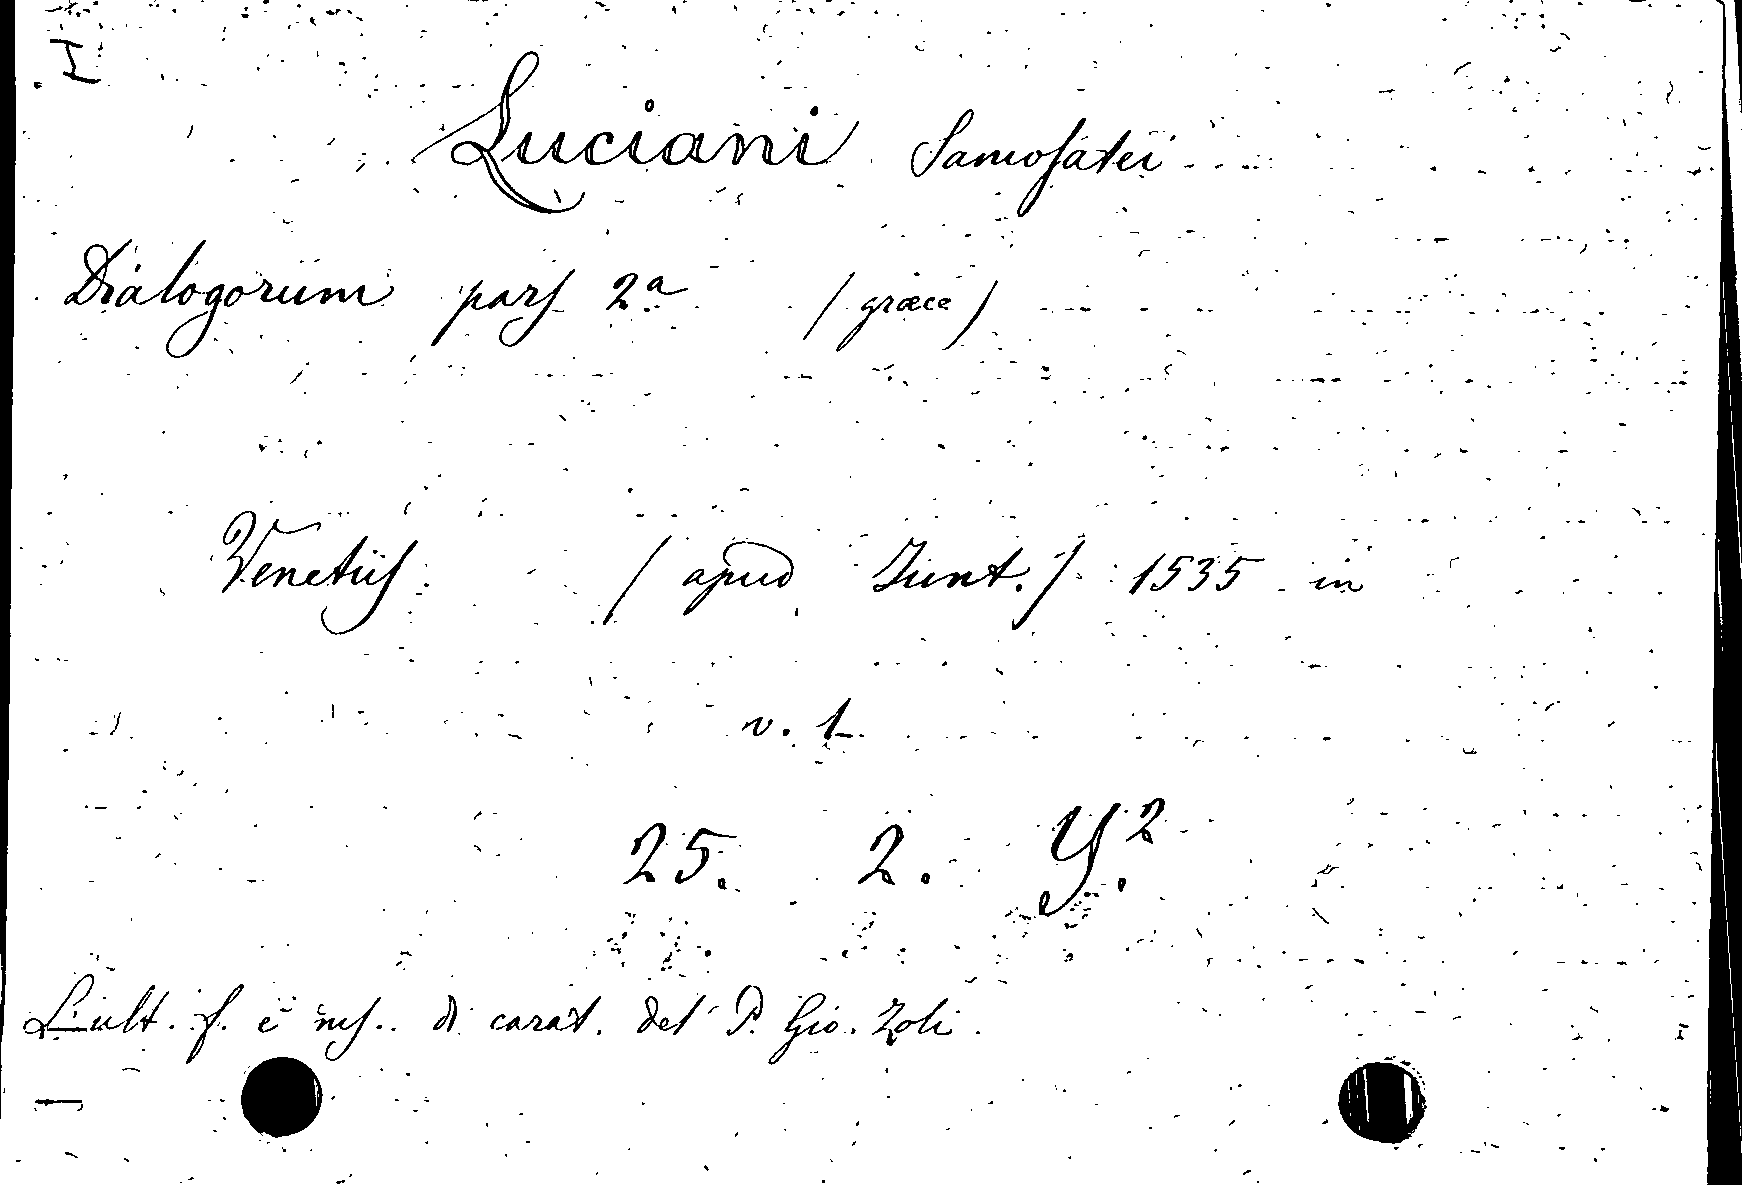 I
Luciani Samosatei
Dialogorum pars 2a (græce)
Venetiis (apud Junt.) 1535 in
v. 1
25. 2. Y.2
L'ult. f. è ms. di carat. del P. Gio. Zoli.